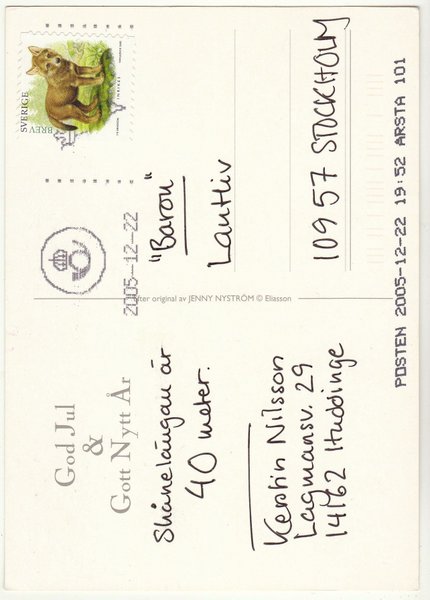 God Jul
&
Gott Nytt År
Skånelängan är
40 meter.
Kerstin Nilsson
Lagmansv. 29
14162 Huddinge
original av JENNY NYSTRÖM © Eliasson
2005-12-22
SVERIGE
BREV
"Baron"
Lantliv
109 57 STOCKHOLM
POSTEN 2005-12-22 19:52 ARSTA 101